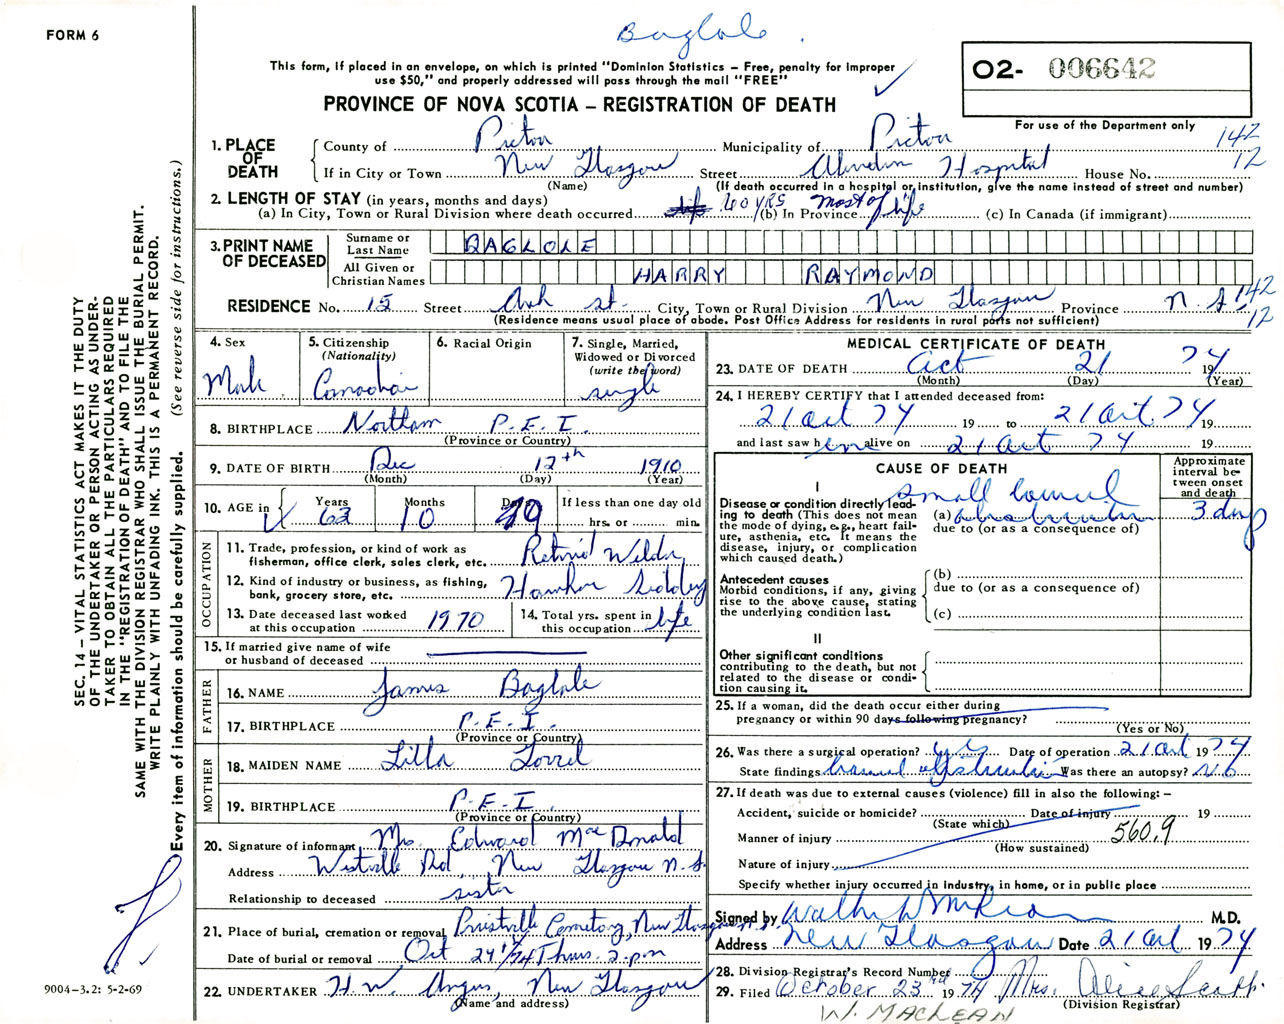 FORM 6
Baglole
This form, if placed in an envelope, on which is printed "Dominion Statistics – Free, penalty for improper
use $50," and properly addressed will pass through the mail "FREE"
O2- 006642
PROVINCE OF NOVA SCOTIA – REGISTRATION OF DEATH
For use of the Department only
142
12
1. PLACE OF DEATH
County of Pictou Municipality of Pictou
If in City or Town New Glasgow Street Aberdeen Hospital House No.
(Name) (If death occurred in a hospital or institution, give the name instead of street and number)
2. LENGTH OF STAY (in years, months and days)
(a) In City, Town or Rural Division where death occurred 60 YRS (b) In Province most of life (c) In Canada (if immigrant)
3. PRINT NAME OF DECEASED
Surname or Last Name BAGLOLE
All Given or Christian Names HARRY RAYMOND
RESIDENCE No. 15 Street Ash St. City, Town or Rural Division New Glasgow Province N.S. 142
12
(Residence means usual place of abode. Post Office Address for residents in rural parts not sufficient)
4. Sex
Male
5. Citizenship
(Nationality)
Canadian
6. Racial Origin
7. Single, Married,
Widowed or Divorced
(write the word)
single
8. BIRTHPLACE Northam P.E.I.
(Province or Country)
9. DATE OF BIRTH Dec 12th 1910
(Month) (Day) (Year)
10. AGE in Years Months Days If less than one day old
63 10 9 hrs. or min.
OCCUPATION
11. Trade, profession, or kind of work as
fisherman, office clerk, sales clerk, etc. Retired Welder
12. Kind of industry or business, as fishing,
bank, grocery store, etc. Hawker Siddley
13. Date deceased last worked
at this occupation 1970
14. Total yrs. spent in
this occupation life
15. If married give name of wife
or husband of deceased
FATHER
16. NAME James Baglole
17. BIRTHPLACE P.E.I.
(Province or Country)
MOTHER
18. MAIDEN NAME Lilla
19. BIRTHPLACE P.E.I.
(Province or Country)
20. Signature of informant Mrs Edward MacDonald
Address Westville Rd, New Glasgow N.S.
Relationship to deceased sister
21. Place of burial, cremation or removal Cemetery, New Glasgow N.S.
Date of burial or removal Oct 24th/74 Thurs. 2 p.m
22. UNDERTAKER H.W. Angus, New Glasgow
(Name and address)
MEDICAL CERTIFICATE OF DEATH
23. DATE OF DEATH Oct 21 1974
(Month) (Day) (Year)
24. I HEREBY CERTIFY that I attended deceased from:
21 Oct 74 19 to 21 Oct 74 19
and last saw him alive on 21 Oct 74 19
CAUSE OF DEATH
Approximate
interval be-
tween onset
and death
I
Disease or condition directly lead-
ing to death (This does not mean
the mode of dying, e.g., heart fail-
ure, asthenia, etc. It means the
disease, injury, or complication
which caused death.)
small bowel
(a) obstruction 3 days
due to (or as a consequence of)
Antecedent causes
Morbid conditions, if any, giving
rise to the above cause, stating
the underlying condition last.
(b)
due to (or as a consequence of)
(c)
II
Other significant conditions
contributing to the death, but not
related to the disease or condi-
tion causing it.
25. If a woman, did the death occur either during
pregnancy or within 90 days following pregnancy?
(Yes or No)
26. Was there a surgical operation? yes Date of operation 21 Oct 1974
State findings bowel obstruction Was there an autopsy? no
27. If death was due to external causes (violence) fill in also the following: –
Accident, suicide or homicide? Date of injury 19
(State which)
Manner of injury 560.9
(How sustained)
Nature of injury
Specify whether injury occurred in industry, in home, or in public place
Signed by M.D.
Address New Glasgow Date 21 Oct 1974
28. Division Registrar's Record Number
29. Filed October 23rd 1974 Mrs. Alice Scott
(Division Registrar)
W. MACLEAN
SEC. 14 – VITAL STATISTICS ACT MAKES IT THE DUTY
OF THE UNDERTAKER OR PERSON ACTING AS UNDER-
TAKER TO OBTAIN ALL THE PARTICULARS REQUIRED
IN THE "REGISTRATION OF DEATH" AND TO FILE THE
SAME WITH THE DIVISION REGISTRAR WHO SHALL ISSUE THE BURIAL PERMIT.
WRITE PLAINLY WITH UNFADING INK. THIS IS A PERMANENT RECORD.
Every item of information should be carefully supplied. (See reverse side for instructions.)
9004–3.2: 5-2-69